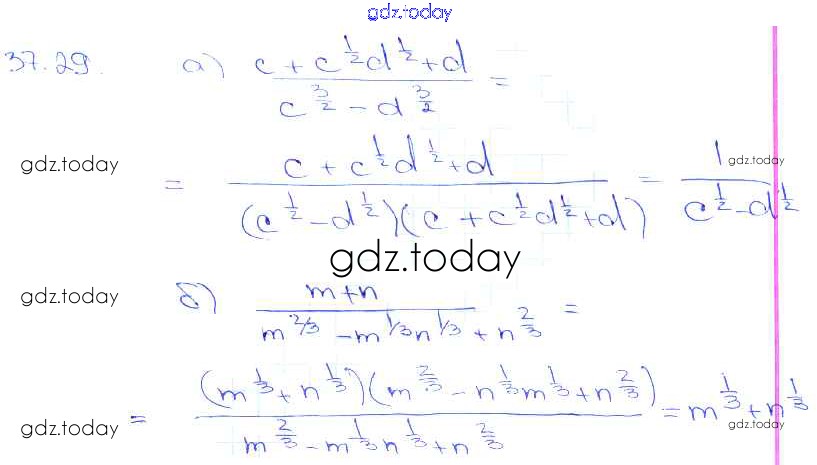 gdz.today
37.29. а) (c + c^{1/2}d^{1/2} + d)/(c^{3/2} - d^{3/2}) =
gdz.today
= (c + c^{1/2}d^{1/2} + d)/((c^{1/2} - d^{1/2})(c + c^{1/2}d^{1/2} + d)) = 1/(c^{1/2} - d^{1/2})
gdz.today
gdz.today
gdz.today
б) (m + n)/(m^{2/3} - m^{1/3}n^{1/3} + n^{2/3}) =
= ((m^{1/3} + n^{1/3})(m^{2/3} - n^{1/3}m^{1/3} + n^{2/3}))/(m^{2/3} - m^{1/3}n^{1/3} + n^{2/3}) = m^{1/3} + n^{1/3}
gdz.today
gdz.today